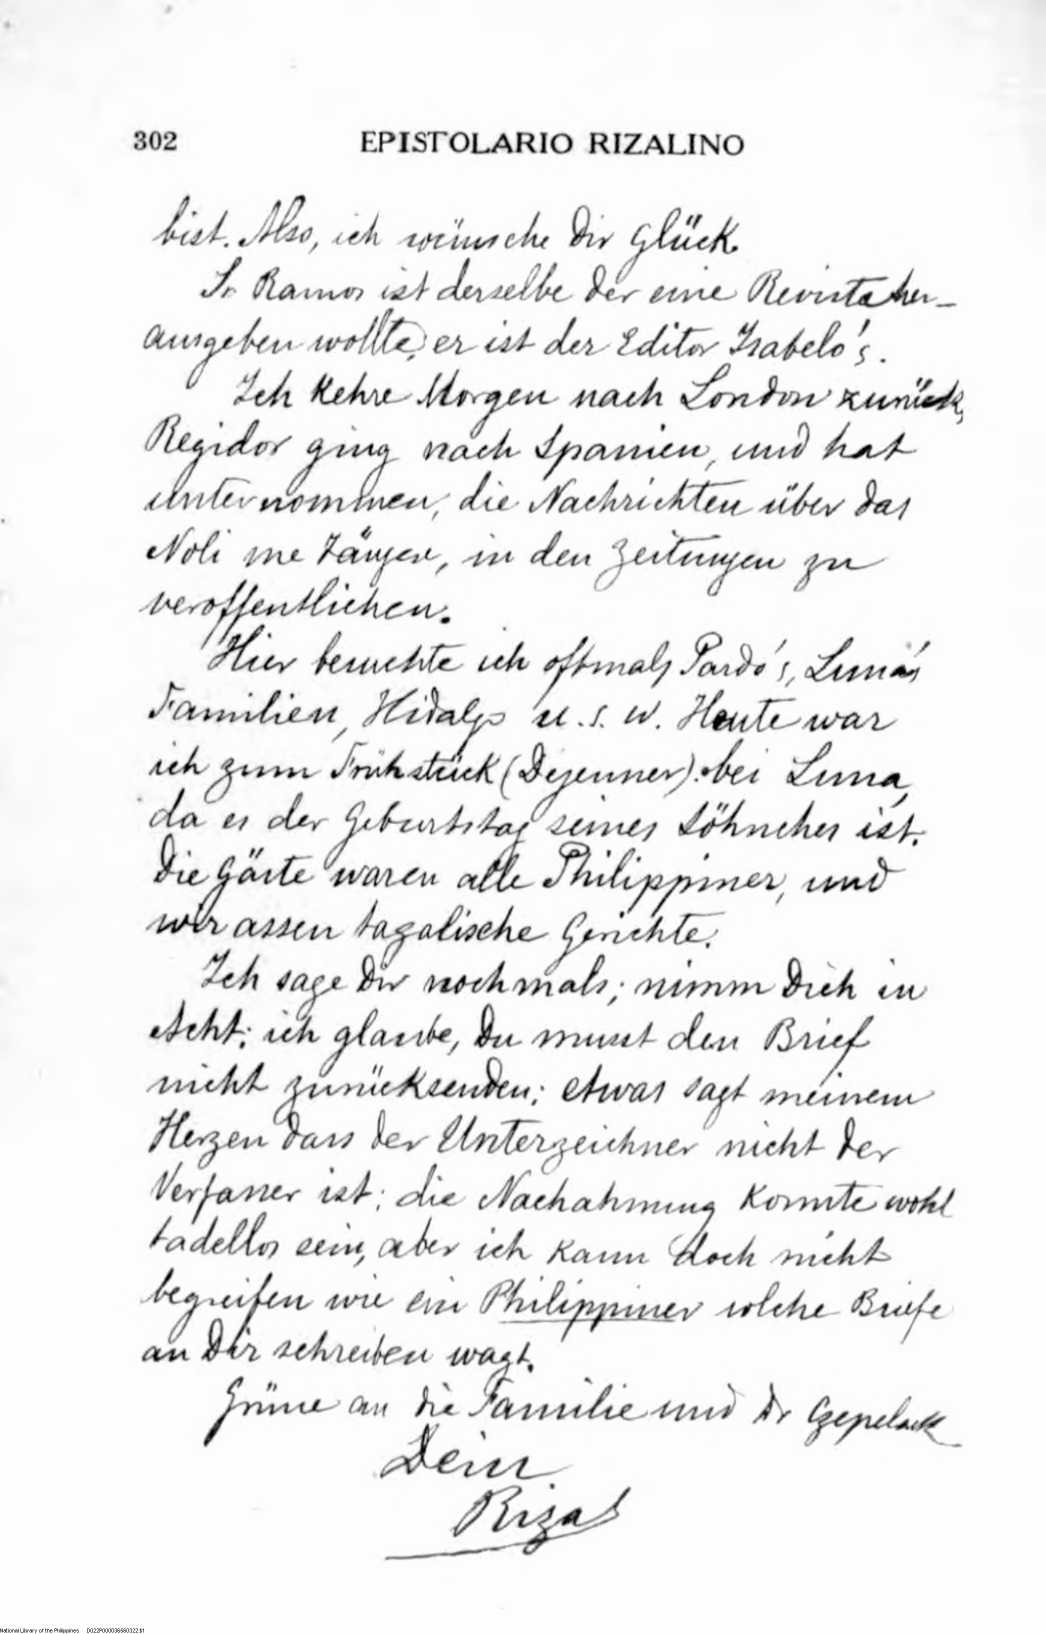 302 EPISTOLARIO RIZALINO
bist. Also, ich wünsche Dir Glück.
Sr. Ramos ist derselbe der eine Revista her-
ausgeben wollte, er ist der Editor Isabelo's.
Ich kehre Morgen nach London zurück,
Regidor ging nach Spanien, und hat
unternommen, die Nachrichten über das
Noli me Tángere, in den Zeitungen zu
veroffentlichen.
Hier besuchte ich oftmals Pardo's, Luna's
Familien, Hidalgo u. s. w. Heute war
ich zum Frühstück (Dejeuner) bei Luna,
da es der Geburtstag seines Söhnches ist.
Die Gäste waren alle Philippiner, und
wir assen tagalische Gerichte.
Ich sage Dir nochmals; nimm Dich in
Acht; ich glaube, Du musst den Brief
nicht zurücksenden; etwas sagt meinem
Herzen dass der Unterzeichner nicht der
Verfasser ist; die Nachahmung konnte wohl
tadellos sein, aber ich kann doch nicht
begreifen wie ein Philippiner solche Briefe
an Dir schreiben wagt.
Grüsse an die Familie und Dr Czepelack
Dein
Rizal
National Library of the Philippines